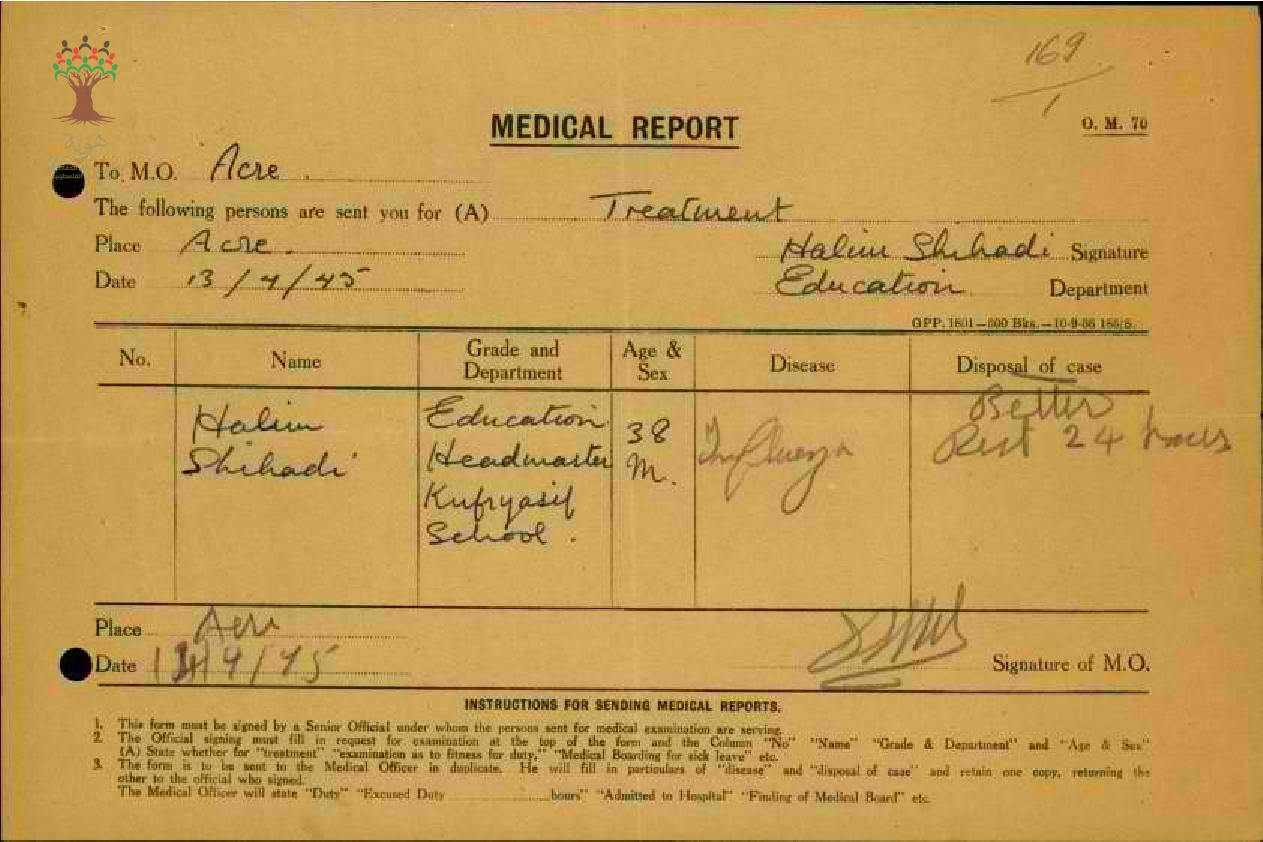 169
1
O. M. 70
MEDICAL REPORT
To M.O. Acre.
The following persons are sent you for (A) Treatment
Place Acre.
Halim Shihadi Signature
Date 13/4/45
Education Department
GPP. 1801—600 Bks.—10-9-36
No. Name Grade and Department Age & Sex Disease Disposal of case
Halim Education 38 Influenza Better
Shihadi Headmaster M. Rest 24 hours
Kufryasif
School.
Place Acre
Date 4/45
Signature of M.O.
INSTRUCTIONS FOR SENDING MEDICAL REPORTS.
1. This form must be signed by a Senior Official under whom the persons sent for medical examination are serving.
2. The Official signing must fill in request for examination at the top of the form and the Column "No" "Name" "Grade & Department" and "Age & Sex"
(A) State whether for "treatment" "examination as to fitness for duty," "Medical Boarding for sick leave" etc.
3. The form is to be sent to the Medical Officer in duplicate. He will fill in particulars of "disease" and "disposal of case" and retain one copy, returning the
other to the official who signed.
The Medical Officer will state "Duty" "Excused Duty ........ hours" "Admitted to Hospital" "Finding of Medical Board" etc.